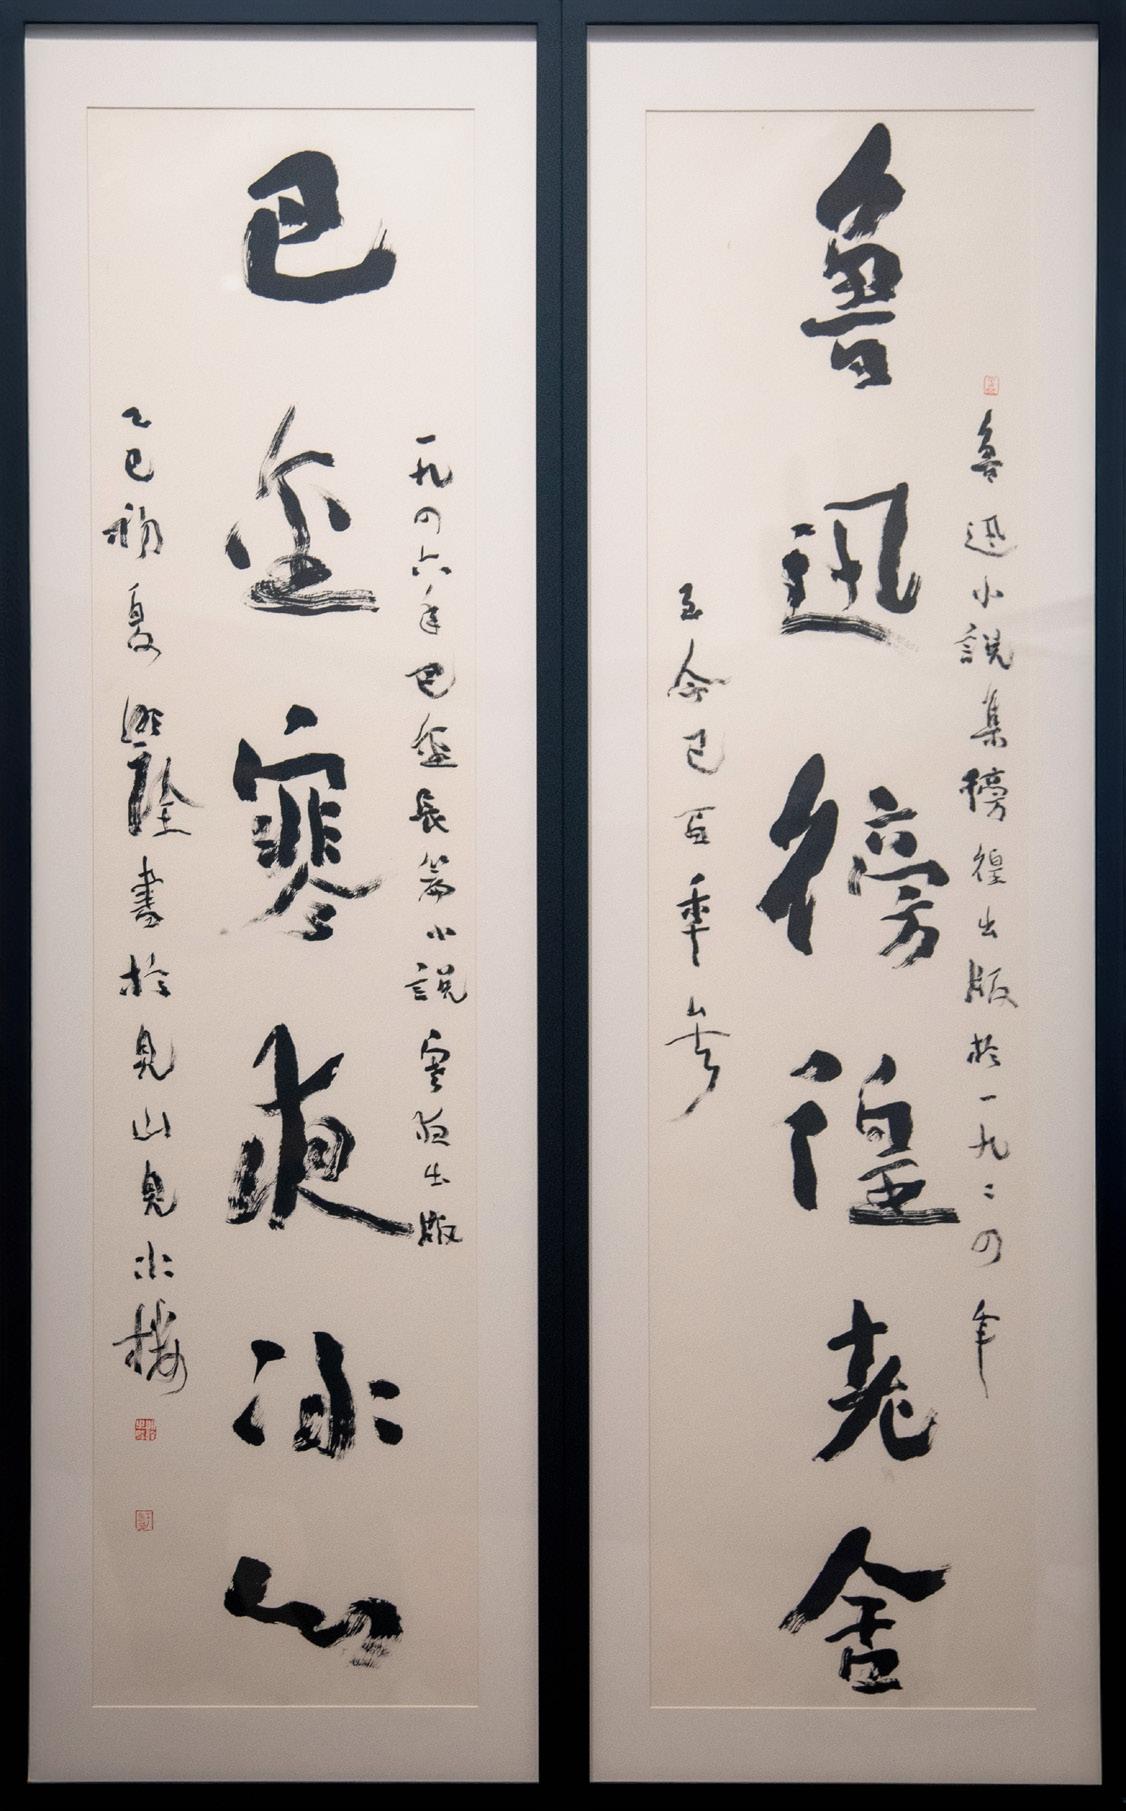 魯迅小說集徬徨出版於一九二四年
魯迅徬徨老舍
至今已百年矣
一九四六年巴金長篇小說寒夜出版
巴金寒夜冰心
乙巳初夏書於見山見水樓